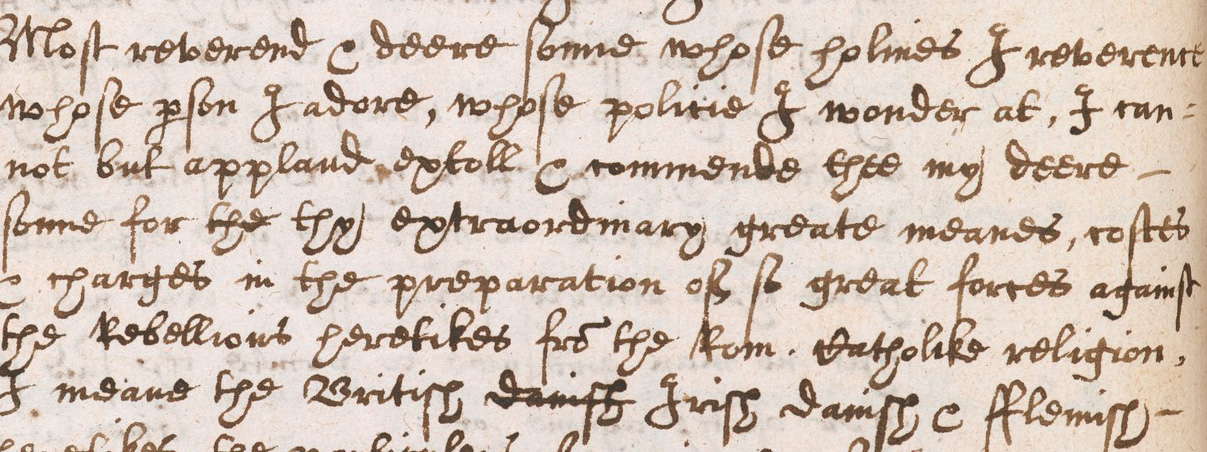 Most reverend & deere sonne whose holines I reverence
whose pson I adore, whose policie I wonder at, I can-
not but applaud extoll & commende thee my deere -
sonne for the thy extraordinary greate meanes, costes
& charges in the preparation of so great forces against
the Rebellious heretikes frō the Rom. Catholike religion,
I meane the British danish Irish danish & fflemish -
heretikes the